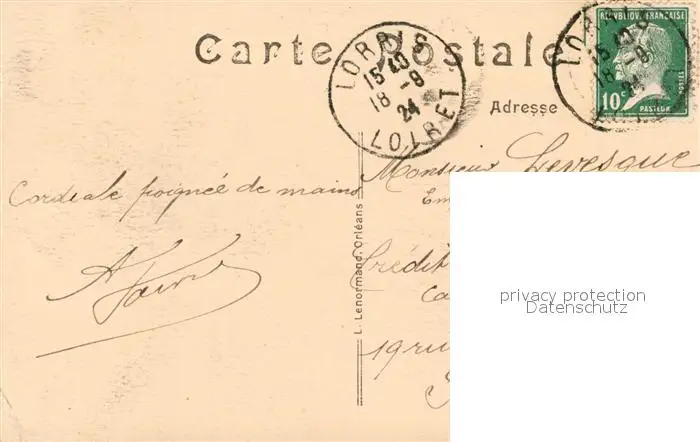 Carte Postale
LORRIS
15 40
18 - 9
24
LOIRET
LORRIS
15 40
18 - 9
24
REPUBLIQUE FRANCAISE
10c
POSTES
PASTEUR
Adresse
Cordiale poignée de mains
L. Lenormand, Orléans
Monsieur Levesque
Em
Crédit
Ca
19 ru
privacy protection
Datenschutz